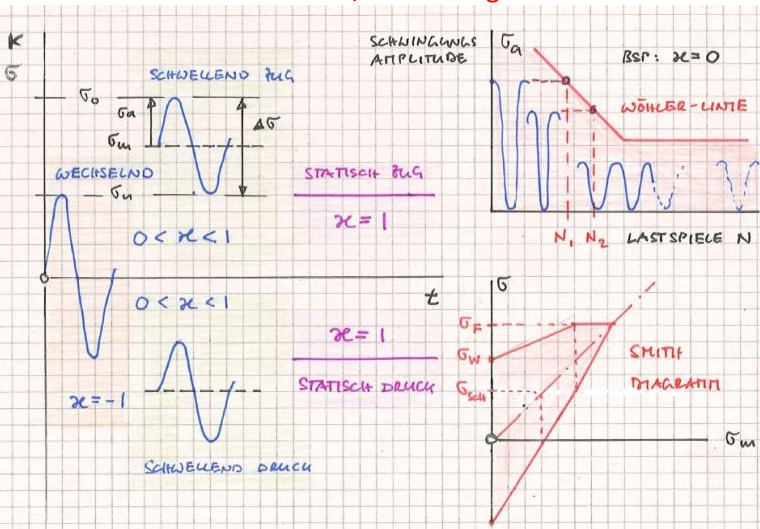 K
σ
SCHWELLEND ZUG
σo
σa
σm
Δσ
WECHSELND
σu
0 < ϰ < 1
STATISCH ZUG
ϰ = 1
t
0 < ϰ < 1
ϰ = 1
STATISCH DRUCK
ϰ = -1
SCHWELLEND DRUCK
SCHWINGUNGS
AMPLITUDE
σa
BSP: ϰ = 0
WÖHLER-LINIE
N1 N2 LASTSPIELE N
σ
σF
σW
σSCH
SMITH
DIAGRAMM
σm